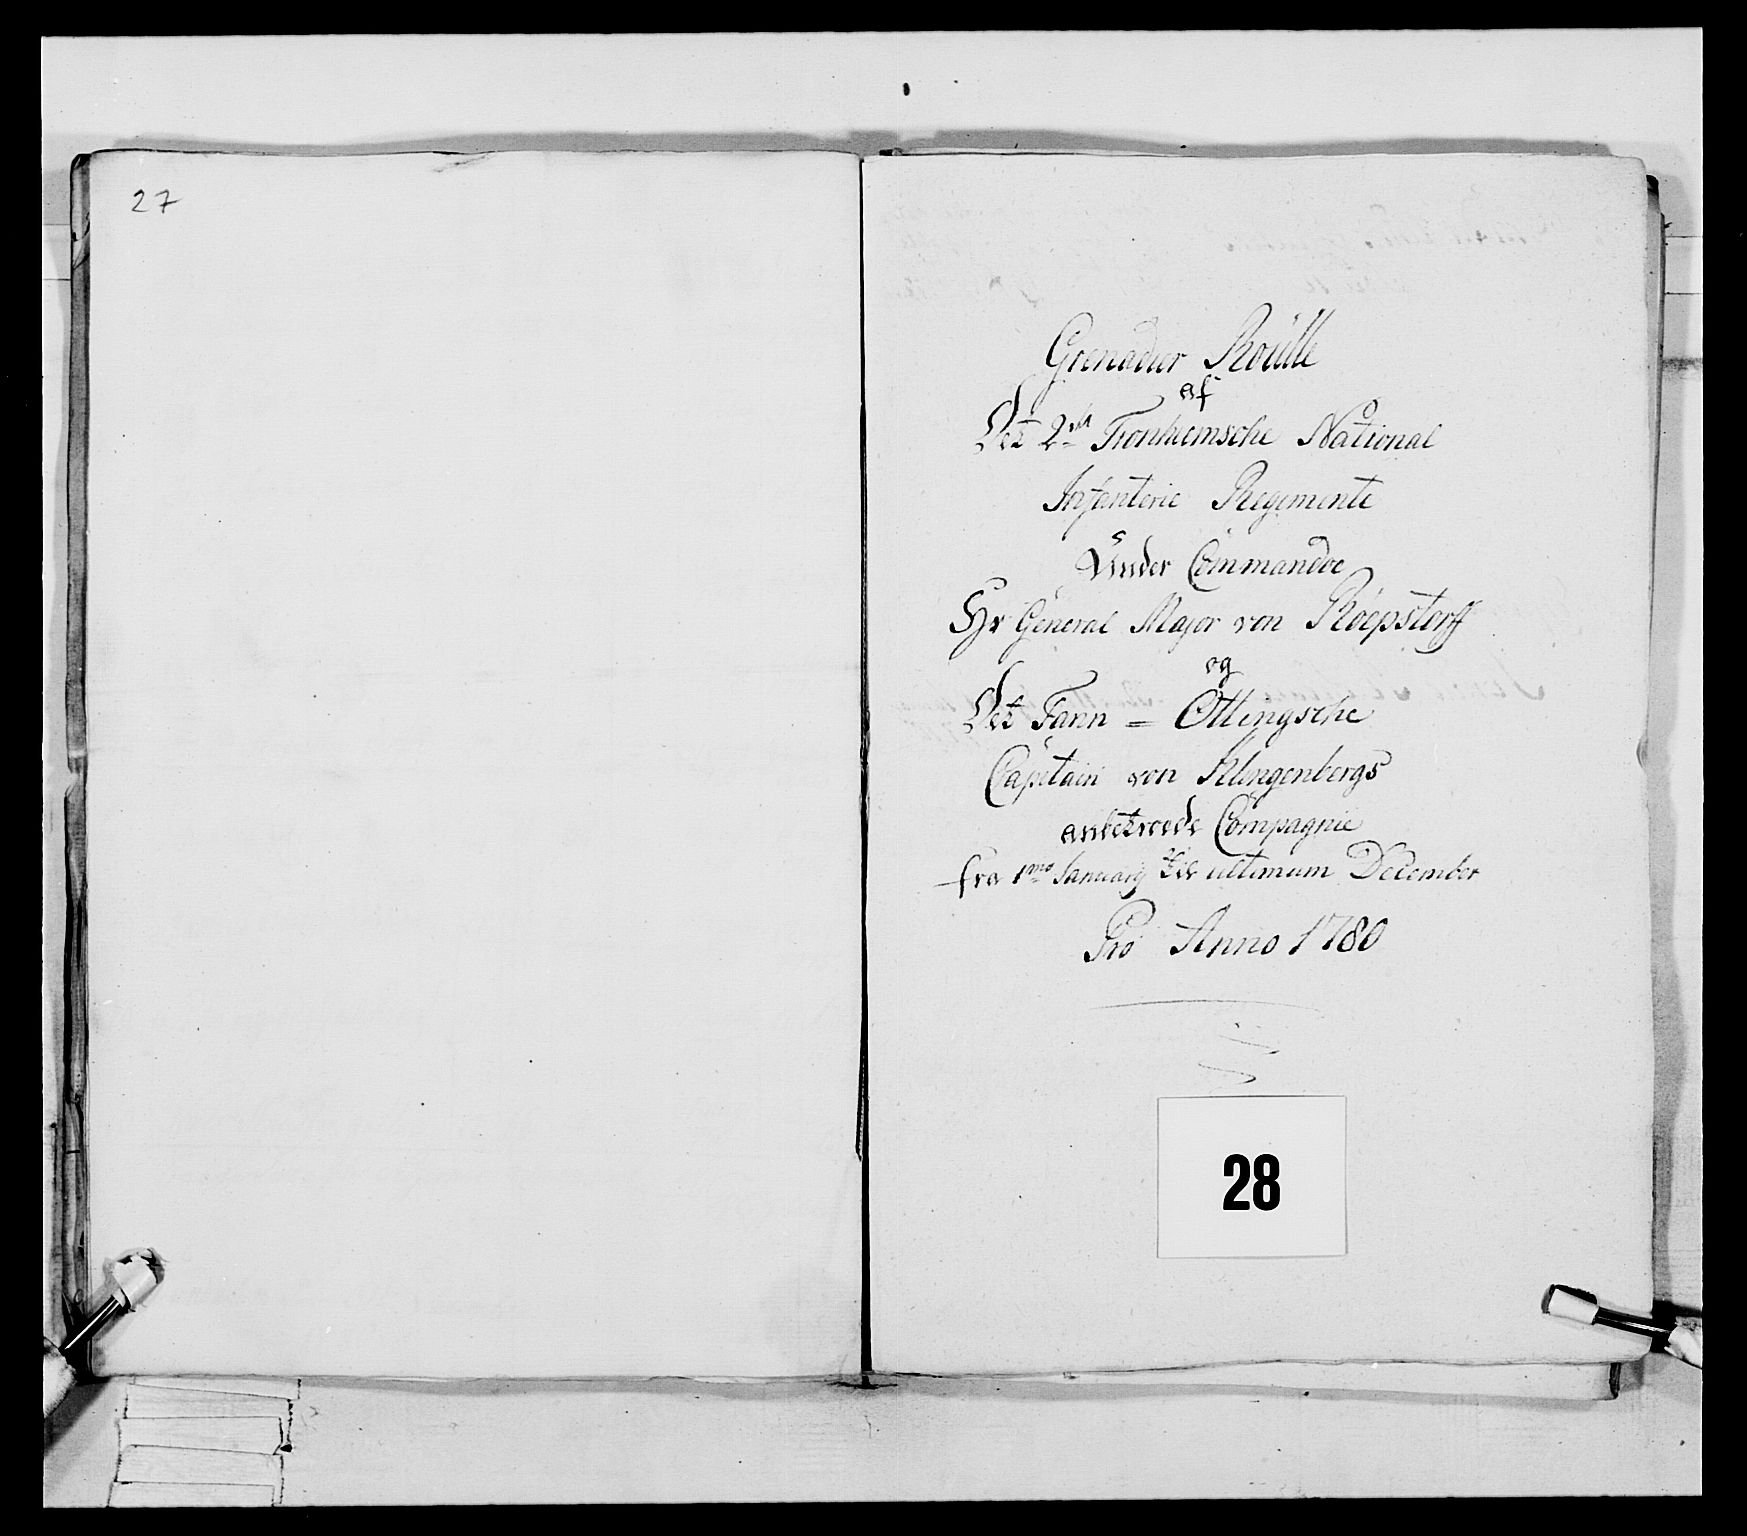 27
Grenadier Roulle
af
Det 2det Tronhiemsche National
Infanterie Regimente
Under Commandoe
Hr General Major von Röepstorff
og
Det Tann = Ottingsche
Capitain von Klingenbergs
anbetroede Compagnie
fra 1mo January til ultimum December
Pro Anno 1780
28